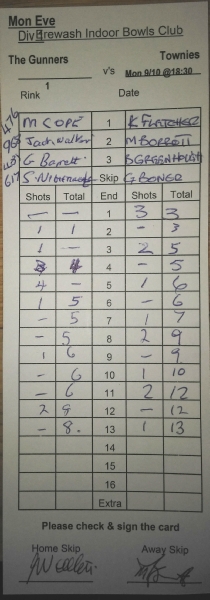 Mon Eve
Div 1 Erewash Indoor Bowls Club
The Gunners v's Townies
Mon 9/10 @18:30
Rink 1 Date
M COPE 1 K FLETCHER
Jack Walker 2 M BORRETT
G Barrett 3
Skip G BONGE
Shots Total End Shots Total
— — 1 3 3
1 1 2 - 3
1 - 3 2 5
4 - 5
4 - 5 1 6
1 5 6 - 6
- 5 7 1 7
- 5 8 2 9
1 6 9 - 9
- 6 10 1 10
- 6 11 2 12
2 12 - 12
- 8. 13 1 13
14
15
16
Extra
Please check & sign the card
Home Skip Away Skip